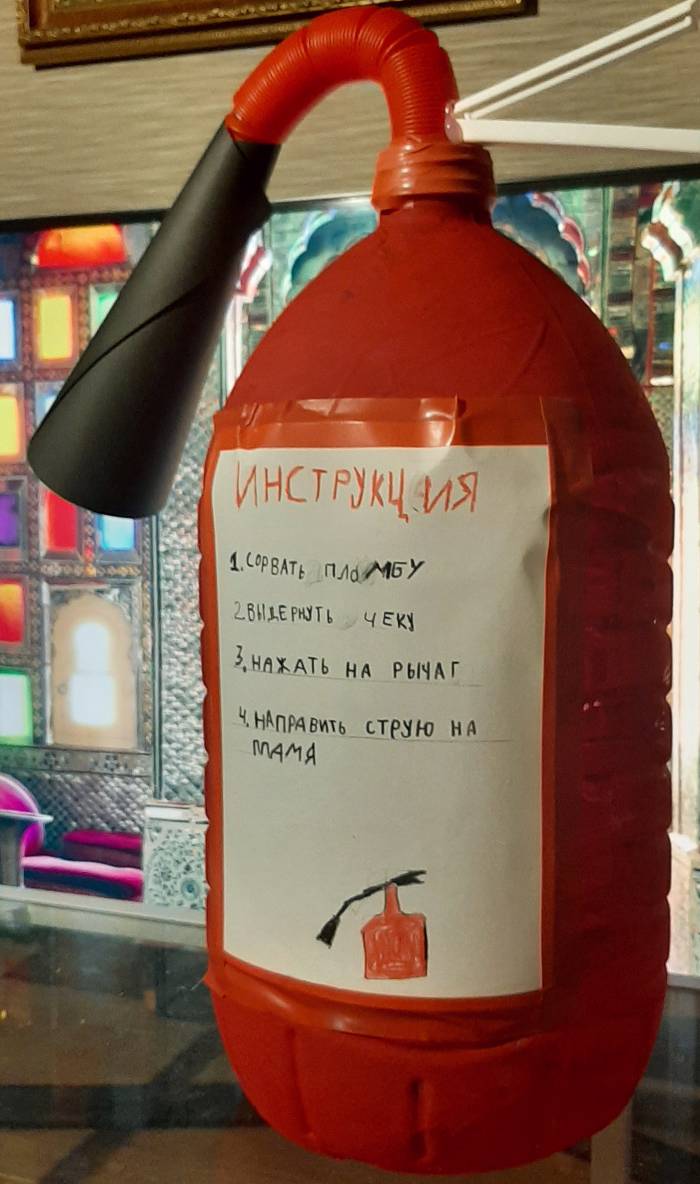 ИНСТРУКЦИЯ
1. СОРВАТЬ ПЛОМБУ
2 ВЫДЕРНУТЬ ЧЕКУ
3. НАЖАТЬ НА РЫЧАГ
4. НАПРАВИТЬ СТРУЮ НА
ПЛАМЯ